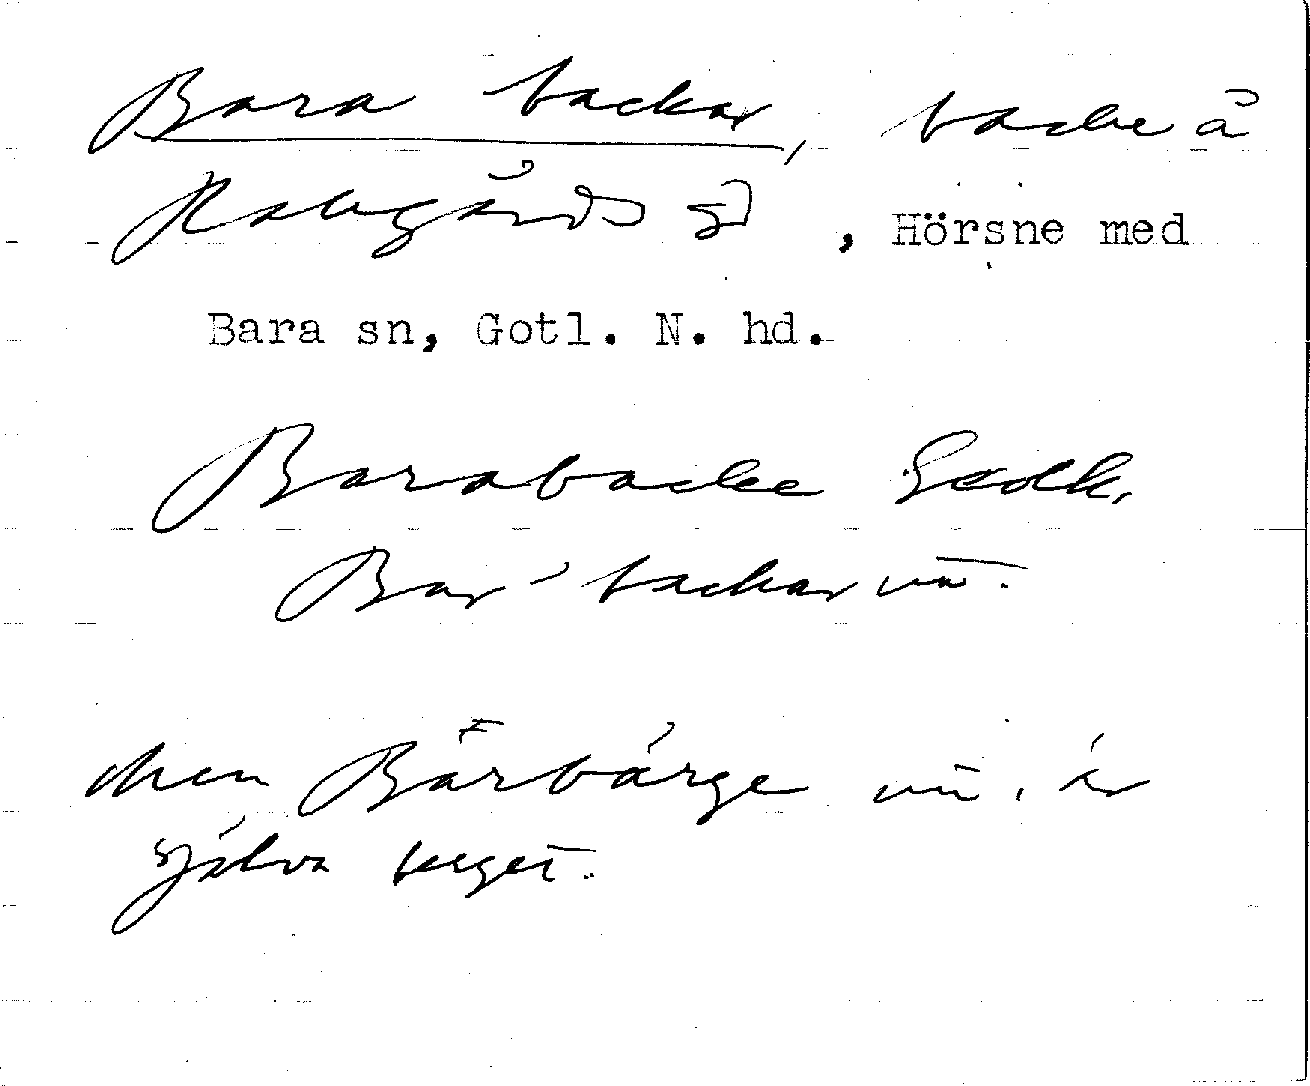 Bara backar, backe å
Nabgårds gd, Hörsne med
Bara sn, Gotl. N. hd.
Barabacke Sädk.
Bar'backar un.
Men Bärbärge un. är
själva berget.